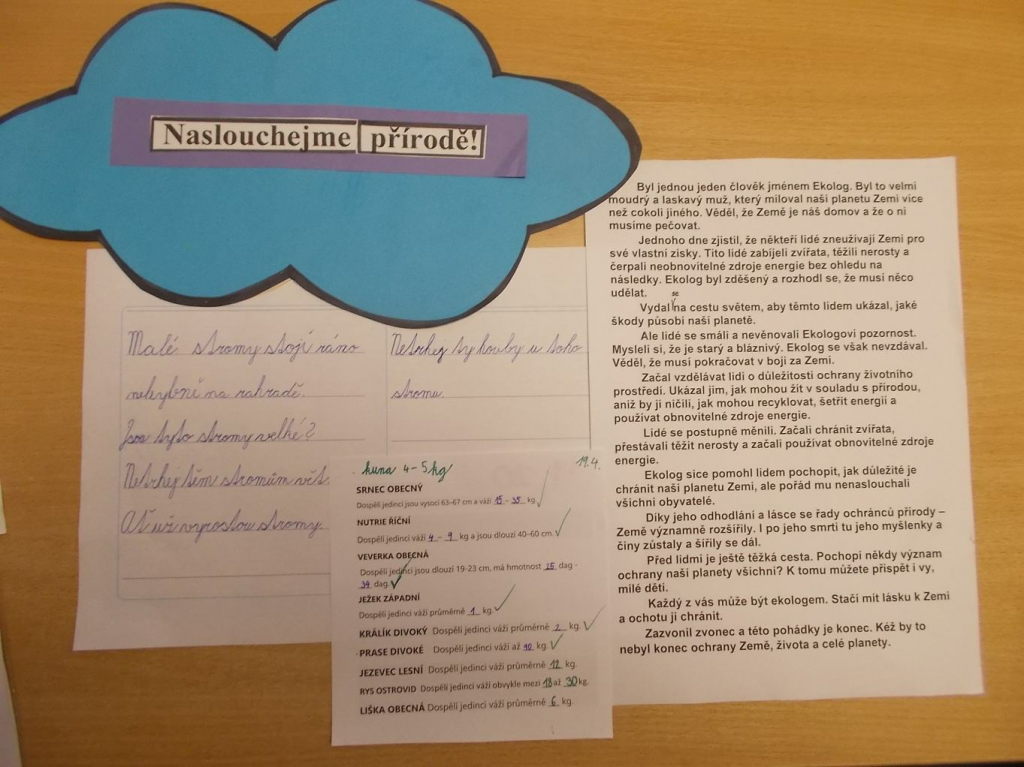 Naslouchejme přírodě!
Malé stromy stojí ráno
nehybně na zahradě.
Jsou tyto stromy velké?
Netrhej těm stromům
Ať už vyrostou stromy
Netrhej ty houby u toho
stromu.
kuna 4-5 kg
19.4.
SRNEC OBECNÝ
Dospělí jedinci jsou vysocí 63-67 cm a váží 15 - 35 kg.
NUTRIE ŘÍČNÍ
Dospělí jedinci váží 4 - 9 kg a jsou dlouzí 40-60 cm.
VEVERKA OBECNÁ
Dospělí jedinci jsou dlouzí 19-23 cm, má hmotnost 25 dag -
34 dag.
JEŽEK ZÁPADNÍ
Dospělí jedinci váží průměrně 1 kg.
KRÁLÍK DIVOKÝ Dospělí jedinci váží průměrně 2 kg.
PRASE DIVOKÉ Dospělí jedinci váží až kg.
JEZEVEC LESNÍ Dospělí jedinci váží průměrně 12 kg.
RYS OSTROVID Dospělí jedinci váží obvykle mezi 18 až 30 kg.
LIŠKA OBECNÁ Dospělí jedinci váží průměrně 6 kg.
Byl jednou jeden člověk jménem Ekolog. Byl to velmi
moudrý a laskavý muž, který miloval naši planetu Zemi více
než cokoli jiného. Věděl, že Země je náš domov a že o ni
musíme pečovat.
Jednoho dne zjistil, že někteří lidé zneužívají Zemi pro
své vlastní zisky. Tito lidé zabíjeli zvířata, těžili nerosty a
čerpali neobnovitelné zdroje energie bez ohledu na
následky. Ekolog byl zděšený a rozhodl se, že musí něco
udělat.
Vydal se na cestu světem, aby těmto lidem ukázal, jaké
škody působí naší planetě.
Ale lidé se smáli a nevěnovali Ekologovi pozornost.
Mysleli si, že je starý a bláznivý. Ekolog se však nevzdával.
Věděl, že musí pokračovat v boji za Zemi.
Začal vzdělávat lidi o důležitosti ochrany životního
prostředí. Ukázal jim, jak mohou žít v souladu s přírodou,
aniž by ji ničili, jak mohou recyklovat, šetřit energii a
používat obnovitelné zdroje energie.
Lidé se postupně měnili. Začali chránit zvířata,
přestávali těžit nerosty a začali používat obnovitelné zdroje
energie.
Ekolog sice pomohl lidem pochopit, jak důležité je
chránit naši planetu Zemi, ale pořád mu nenaslouchali
všichni obyvatelé.
Díky jeho odhodlání a lásce se řady ochránců přírody –
Země významně rozšířily. I po jeho smrti tu jeho myšlenky a
činy zůstaly a šířily se dál.
Před lidmi je ještě těžká cesta. Pochopí někdy význam
ochrany naší planety všichni? K tomu můžete přispět i vy,
milé děti.
Každý z vás může být ekologem. Stačí mít lásku k Zemi
a ochotu ji chránit.
Zazvonil zvonec a této pohádky je konec. Kéž by to
nebyl konec ochrany Země, života a celé planety.